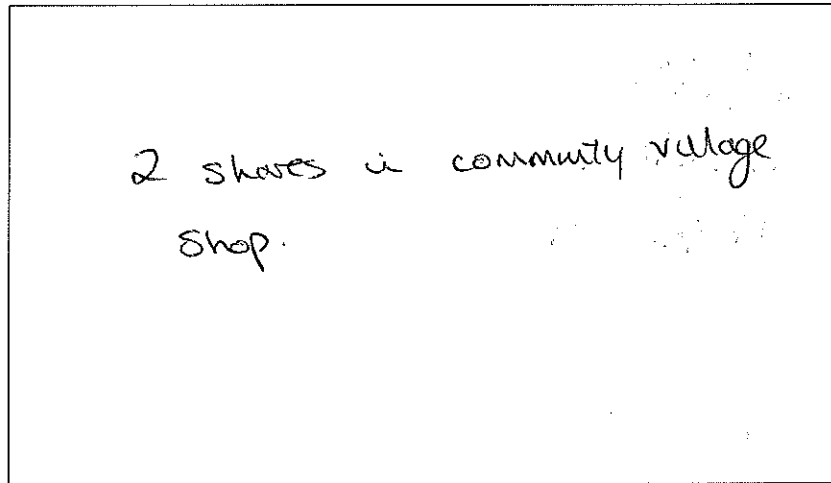 2 shares in community village
shop.